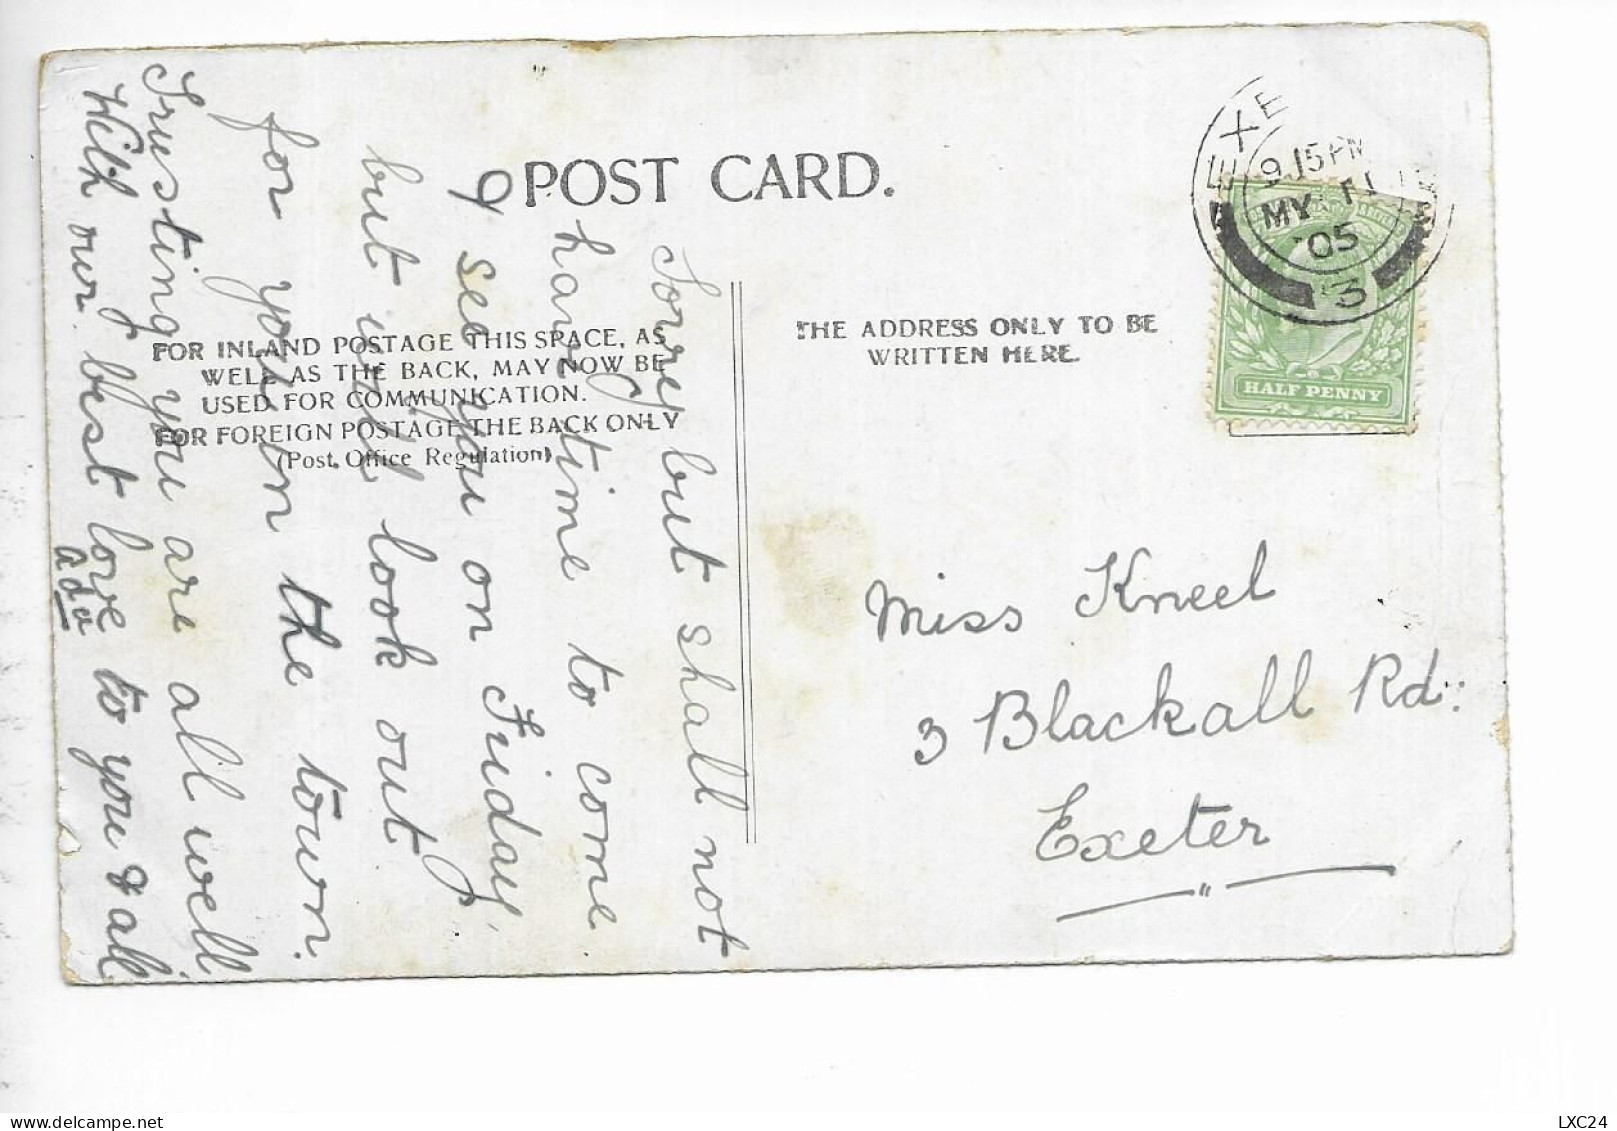 POST CARD.
FOR INLAND POSTAGE THIS SPACE, AS
WELL AS THE BACK, MAY NOW BE
USED FOR COMMUNICATION.
FOR FOREIGN POSTAGE THE BACK ONLY
(Post Office Regulation)
THE ADDRESS ONLY TO BE
WRITTEN HERE.
EXE
9.15 PM
MY 11
05
3
HALF PENNY
Sorry but shall not
have time to come
I see you on Friday,
but will look out
for you in the town.
Trusting you are all well
With our best love to you & all
Ada
Miss Kneel
3 Blackall Rd:
Exeter
LXC24